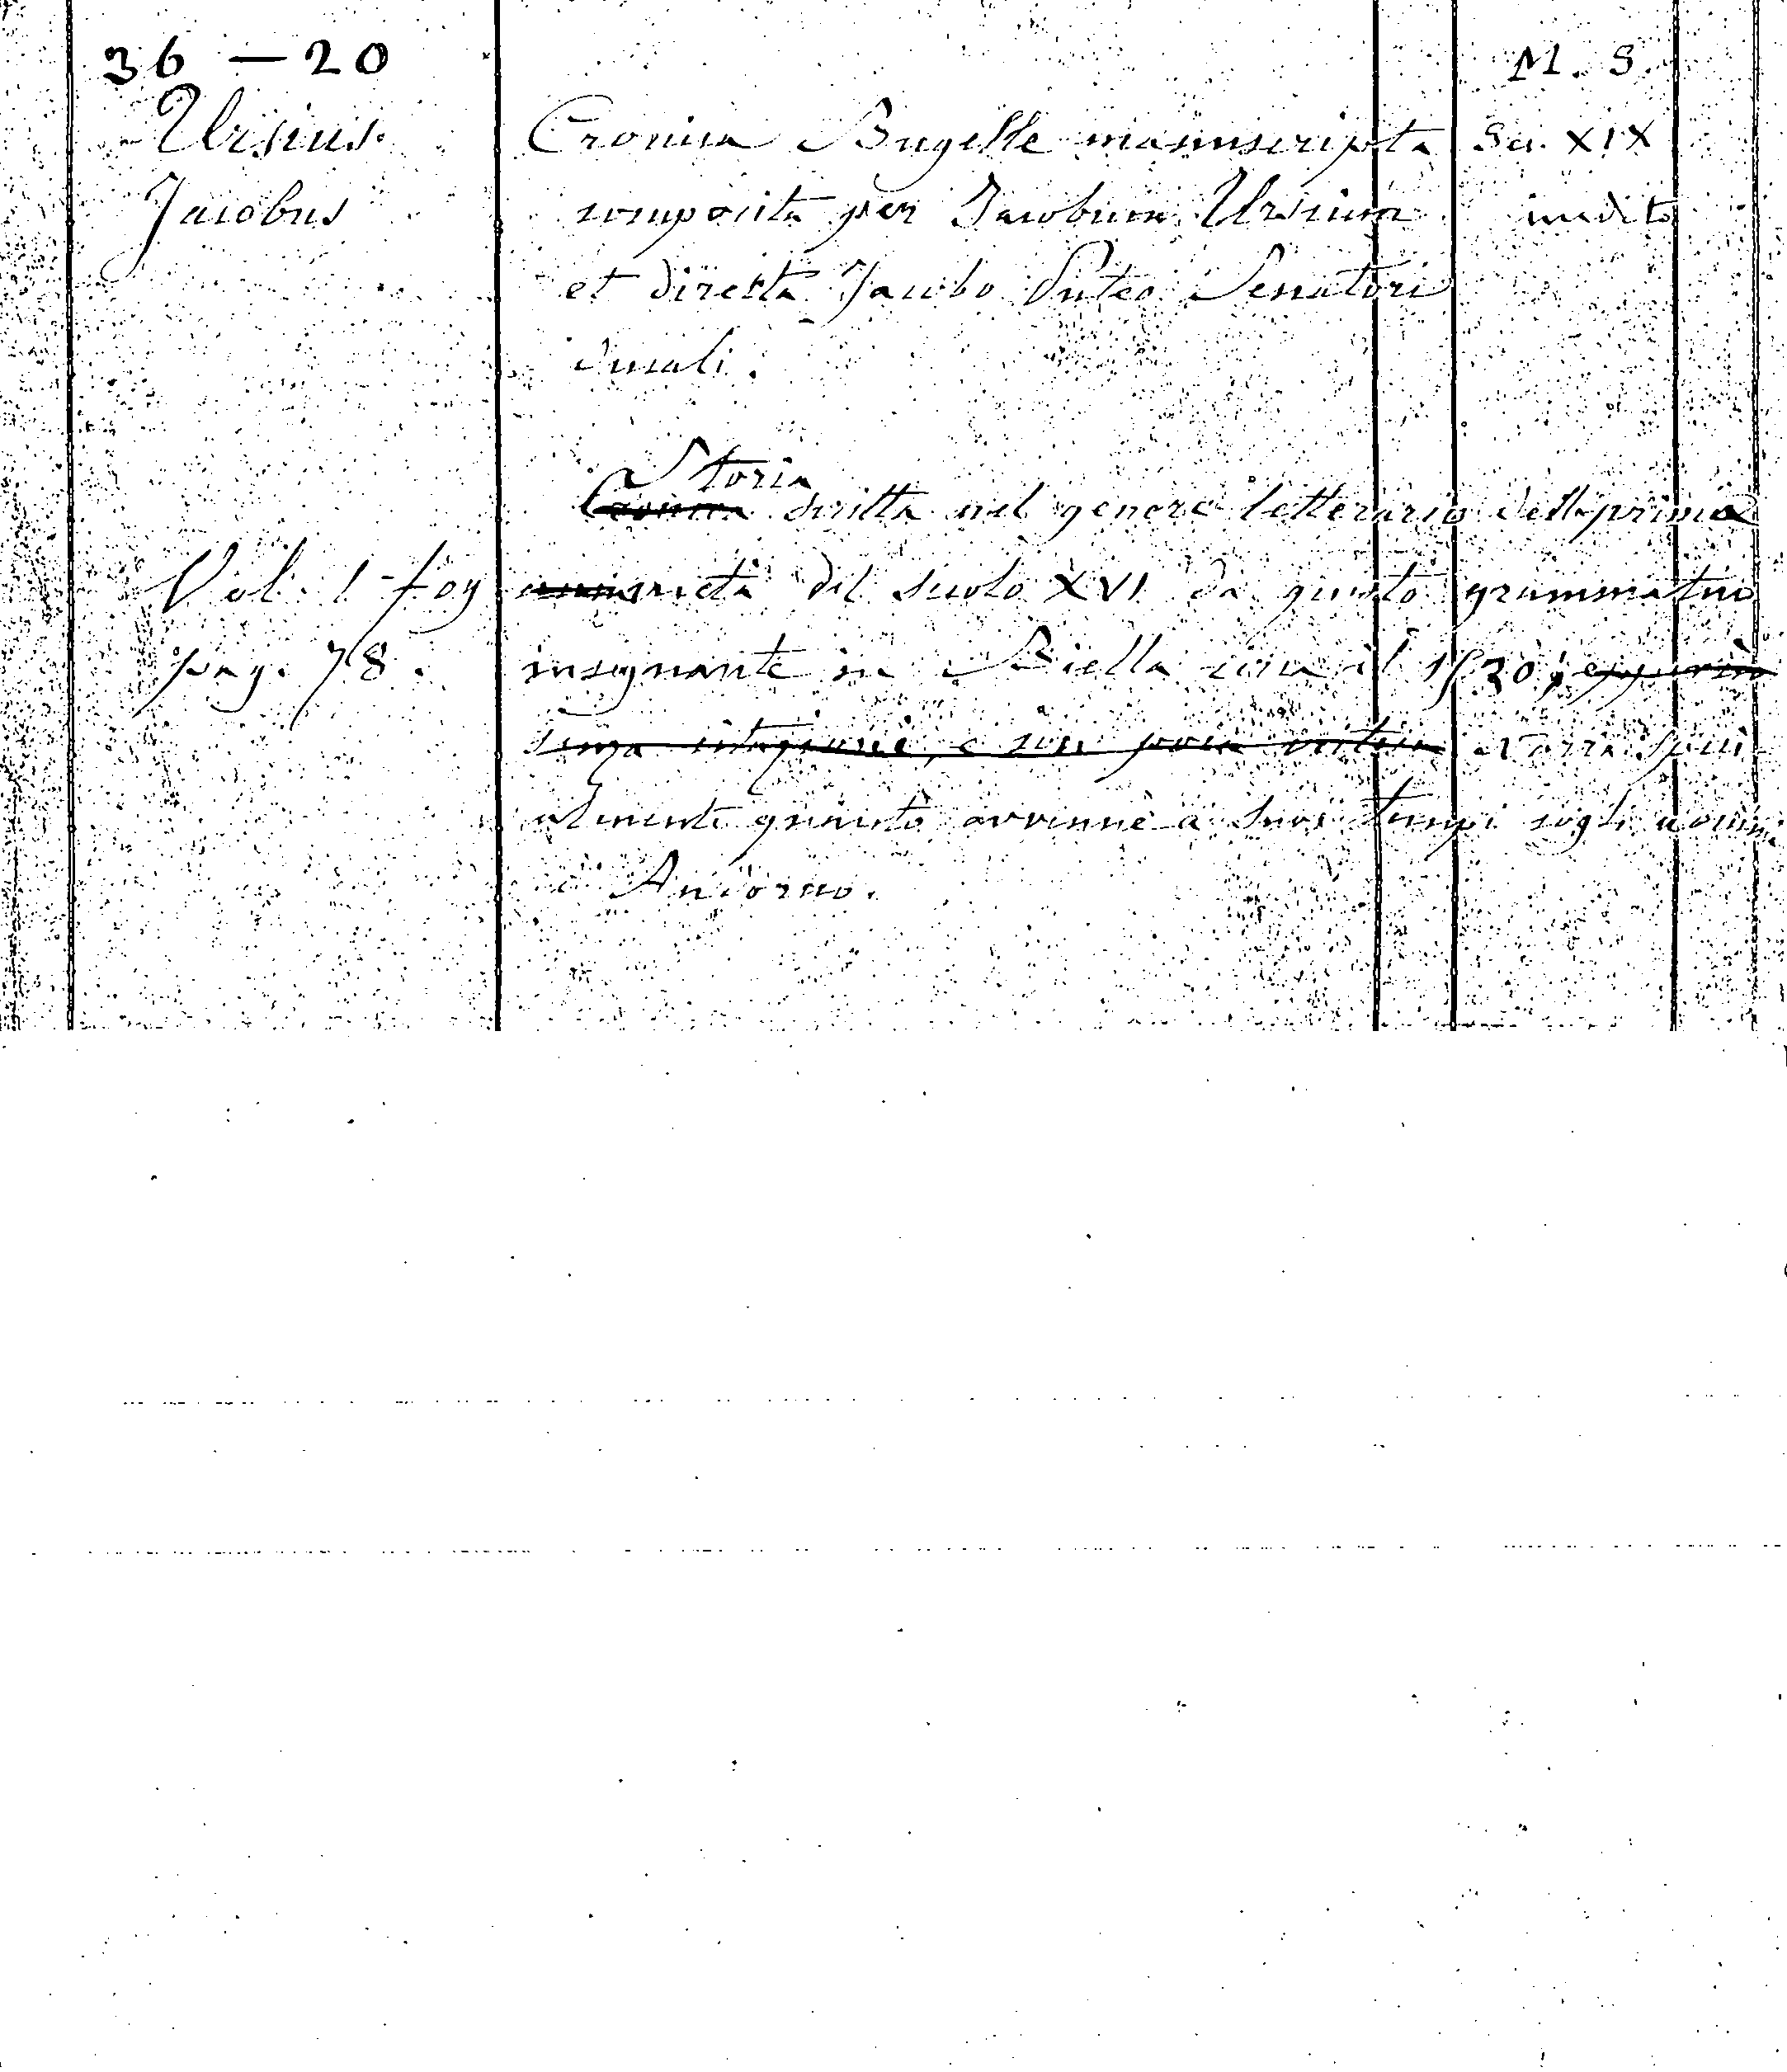 36 — 20
M. S.
Ursius Cronica Bugelle manuscripta Sec. XIX
Jacobus composita per Jacobum Ursium inedita
et directa Jacobo Puteo Senatori
Ducali.
Storia
Cronica scritta nel genere letterario della prima
Vol. 1 fog metà del secolo XVI da questo grammatico
pag. 78. insegnante in Biella circa il 1530;
senza e con poca Narra speci
almente quanto avvenne a suoi tempi cogli uomini
Andorno.